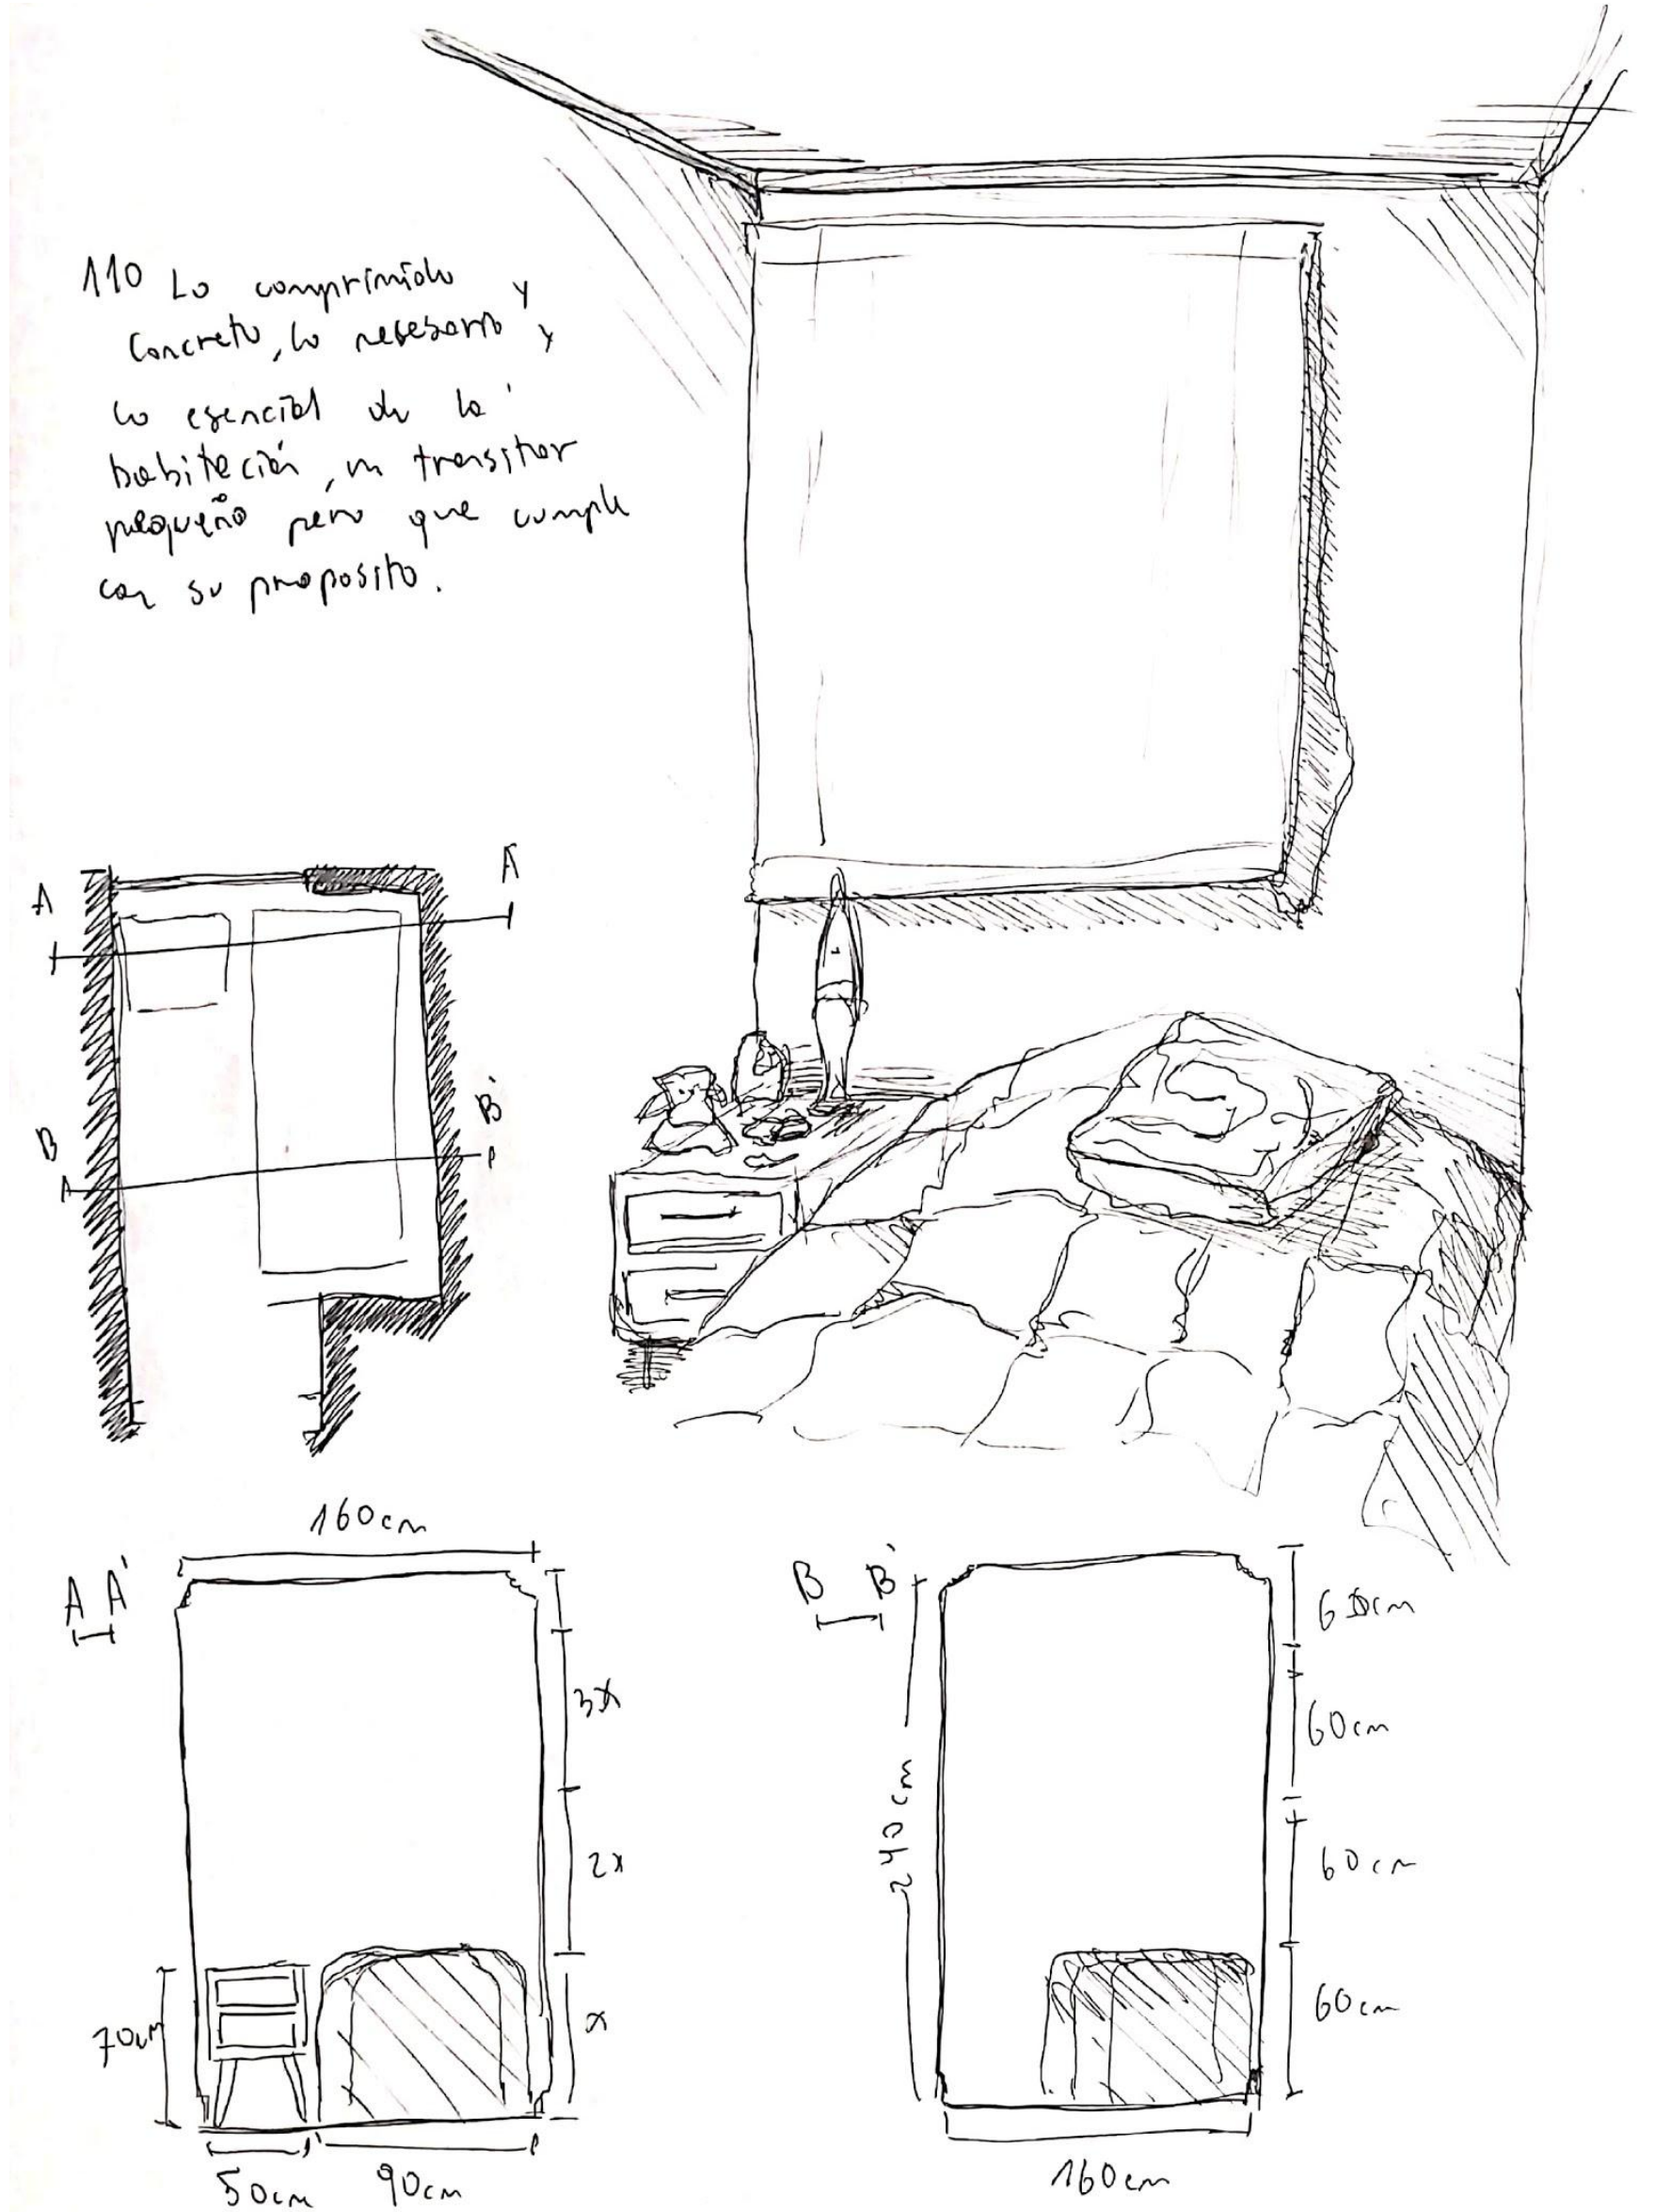 110 Lo comprimido y
concreto, lo nesesario y
lo esencial de la
habitación, un transitar
pequeño pero que cumple
con su proposito.
A A'
B B'
160cm
A A'
3x
2x
x
70cm
50cm 90cm
B B'
240cm
60cm
60cm
60cm
60cm
160cm